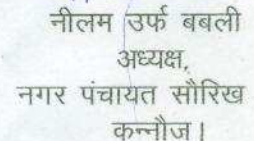 नीलम उर्फ बबली
अध्यक्ष,
नगर पंचायत सौरिख
कन्नौज।